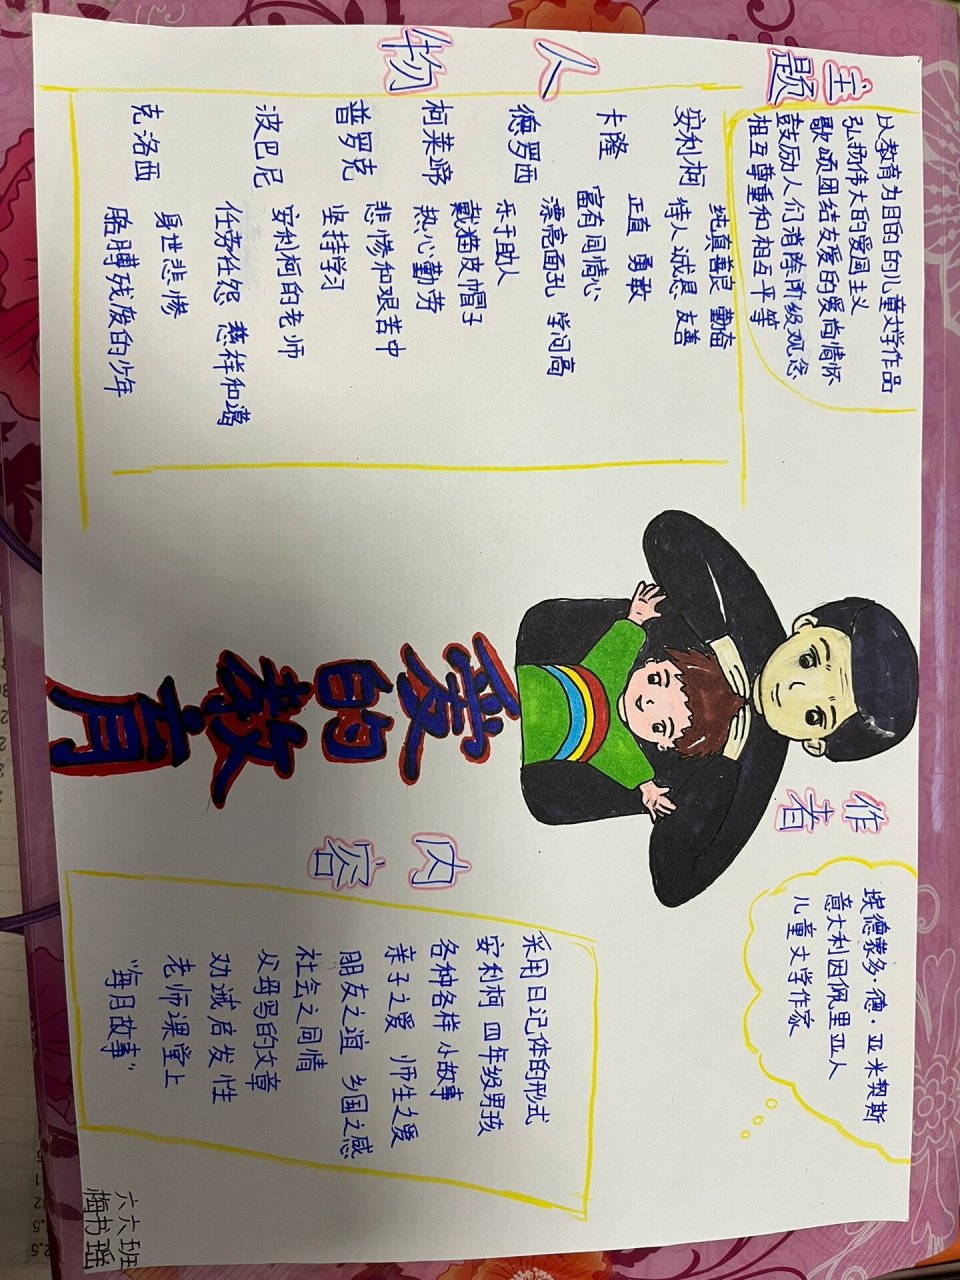 主题
以教育为目的的儿童文学作品
弘扬伟大的爱国主义
歌颂团结友爱的爱尚情怀
鼓励人们消除阶级观念
相互尊重和相互平等
人物
安利柯 纯真善良 勤奋
待人诚恳 友善
卡隆 正直 勇敢
富有同情心
德罗西 漂亮面孔 学问高
乐于助人
柯莱谛 戴猫皮帽子
热心勤劳
普罗克 悲惨和艰苦中
坚持学习
波巴尼 安利柯的老师
任劳任怨 慈祥和蔼
克洛西 身世悲惨
胳膊残废的少年
爱的教育
作者
埃德蒙多·德·亚米契斯
意大利因佩里亚人
儿童文学作家
内容
采用日记体的形式
安利柯 四年级男孩
各种各样小故事
亲子之爱 师生之爱
朋友之谊 乡国之感
社会之同情
父母写的文章
劝诫启发性
老师课堂上
“每月故事”
六六班
梅书瑶